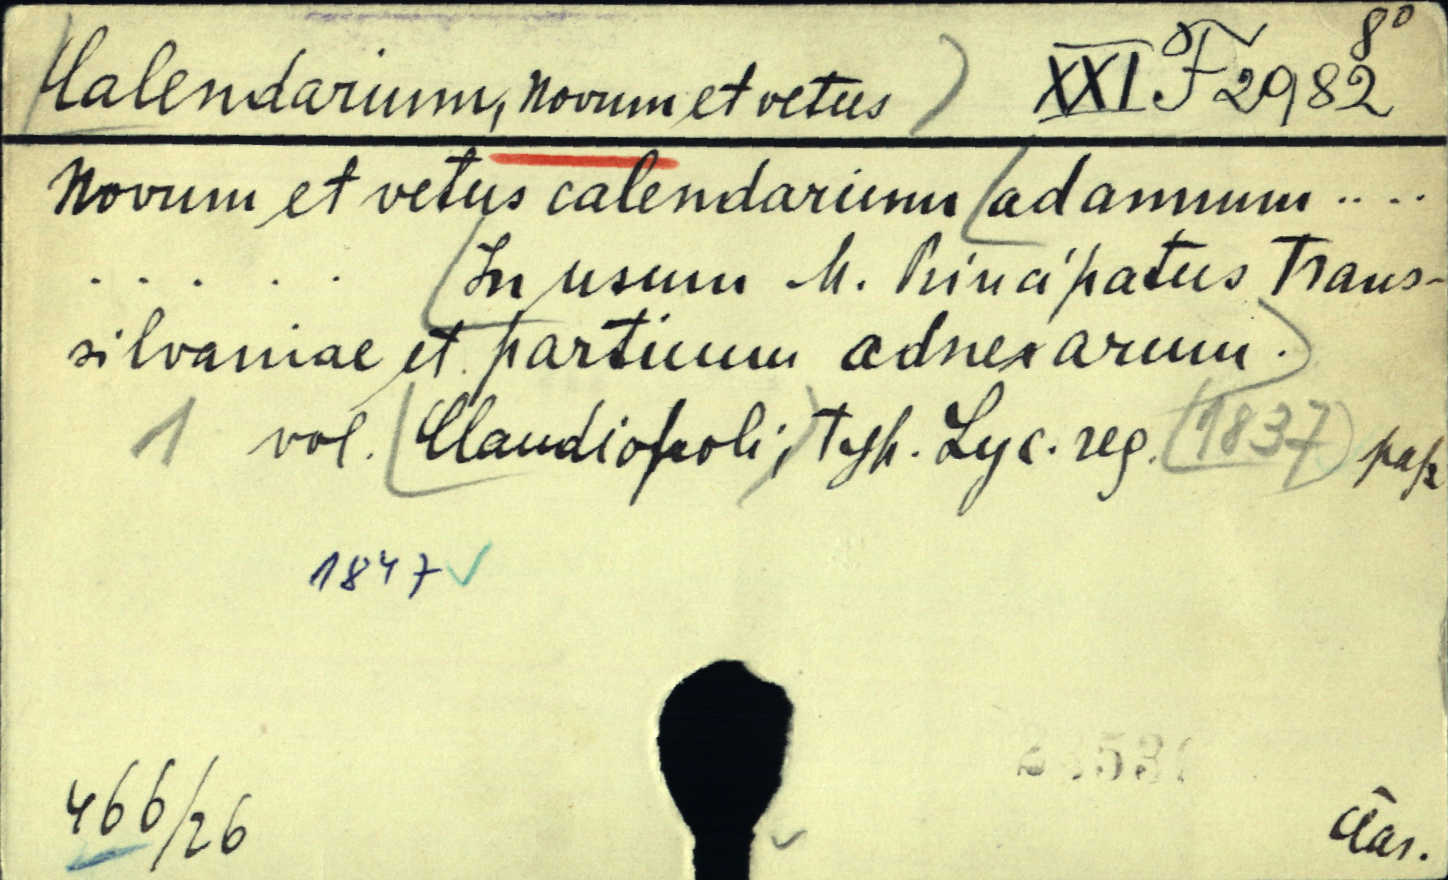 Calendarium, novum et vetus) XXI F 2982 8°
Novum et vetus calendarium (ad annum ....
..... (In usum M. Principatus Trans-
silvaniae et partium adnexarum.)
1 vol. (Claudiopoli,) typ. Lyc. reg. (1837)
1847 ✓
466/26